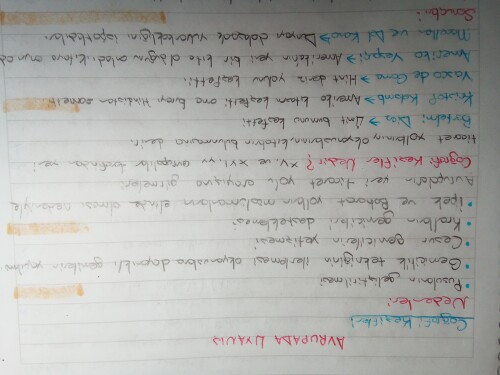 AVRUPADA UYANIŞ
Coğrafi Keşifler:
Nedenleri
• Pusulanın geliştirilmesi
• Gemicilik tekniğinin ilerlemesi okyanuslara dayanıklı gemilerin yapılması
• Cesur gemicilerin yetişmesi
• Kralların gemicileri desteklemesi
• İpek ve Baharat yolların müslümanların elinde olması nedeniyle
Avrupalıların yeni ticaret yolu arayışına girmeleri
Coğrafi Keşifler Nedir? XV. ve XVI. yy. avrupalılar tarafından yeni
ticaret yollarının, okyanusların, kıtaların bulunmasına denir.
Bartelmi Dias → Ümit burnunu keşfetti
Kristof Kolomb → Amerika kıtasını keşfetti ama burayı Hindistan zannetti
Vasco de Gama → Hint deniz yolunu keşfetti
Ameriko Vespuçi → Amerika'nın yeni bir kıta olduğunu anladı
Macellan ve Del Kano → Dünyayı dolaşarak yuvarlaklığını ispatladılar.
Sonuçları: